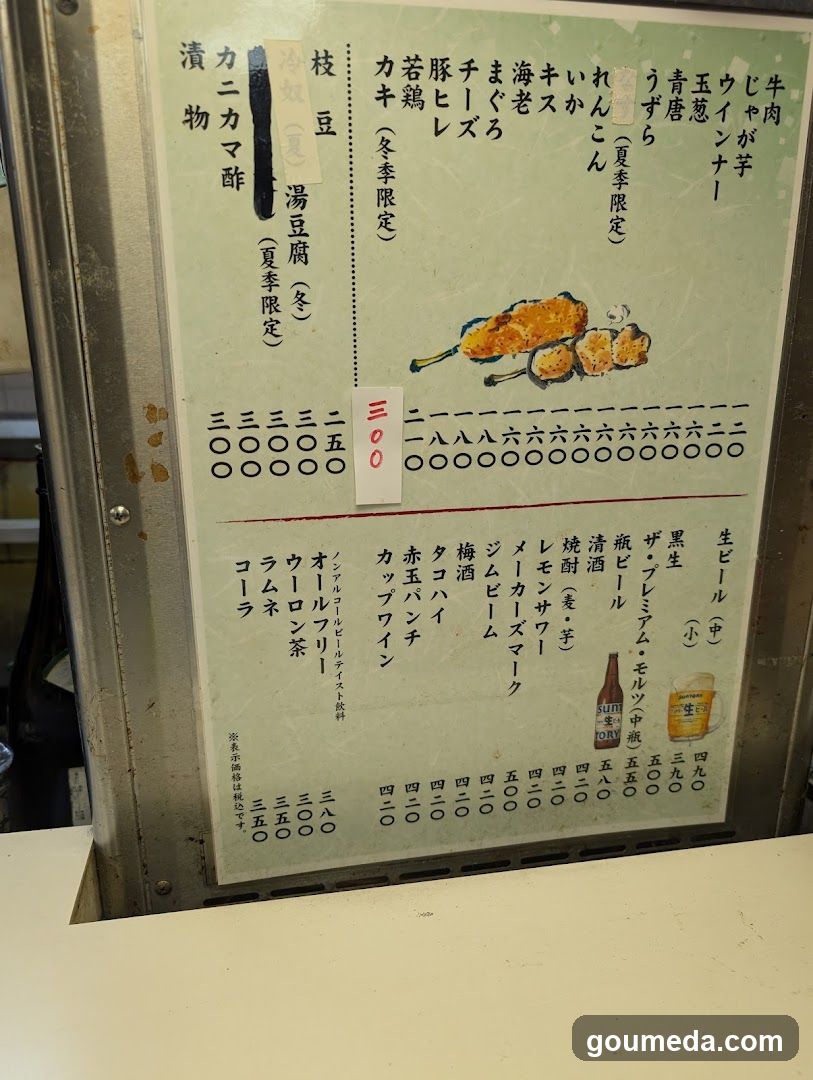 牛肉 一二〇
じゃが芋 一二〇
ウインナー 一六〇
玉葱 一六〇
青唐 一六〇
うずら 一六〇
（夏季限定） 一六〇
れんこん 一六〇
いか 一六〇
キス 一六〇
海老 一六〇
まぐろ 一八〇
チーズ 一八〇
豚ヒレ 一八〇
若鶏 二一〇
カキ（冬季限定） 三〇〇
枝豆 二五〇
冷奴（夏） 湯豆腐（冬） 三〇〇
（夏季限定） 三〇〇
カニカマ酢 三〇〇
漬物 三〇〇
生ビール（中） 四九〇
（小） 三九〇
黒生 五〇〇
ザ・プレミアム・モルツ（中瓶） 五五〇
瓶ビール 五八〇
清酒 四二〇
焼酎（麦・芋） 四二〇
レモンサワー 四二〇
メーカーズマーク 五〇〇
ジムビーム 四二〇
梅酒 四二〇
タコハイ 四二〇
赤玉パンチ 四二〇
カップワイン 四二〇
ノンアルコールビールテイスト飲料
オールフリー 三八〇
ウーロン茶 三〇〇
ラムネ 三五〇
コーラ 三五〇
※表示価格は税込です。
SUNTORY
生ビール
SUNTORY
生
goumeda.com